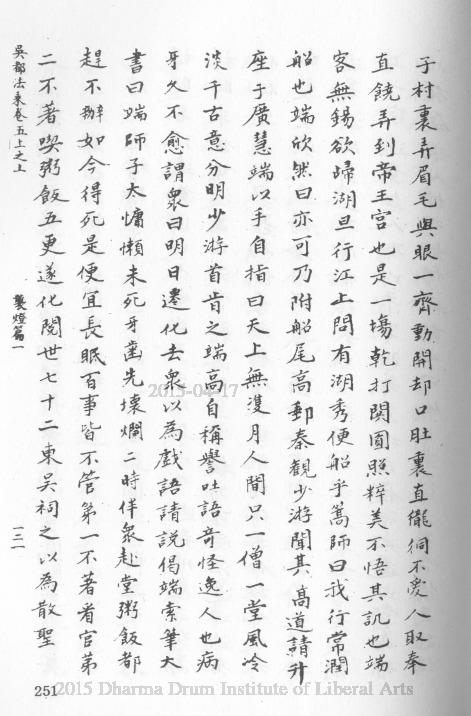 子村裏弄眉毛與眼一齊動開却口肚裏直儱侗不愛人取奉
直饒弄到帝王宮也是一塲乾打閧圓照粹美不悟其訊也端
客無錫欲歸湖旦行江上問有湖秀便船乎篙師曰我行常潤
船也端欣然曰亦可乃附船尾高郵秦觀少游聞其高道請升
座于廣慧端以手自指曰天上無雙月人間只一僧一堂風冷
淡千古意分明少游首肯之端高自稱譽吐語奇怪逸人也病
牙久不愈謂衆曰明日遷化去衆以為戲語請説偈端索筆大
書曰端師子太慵懶未死牙齒先壞爛二時伴衆赴堂粥飯都
趕不辦如今得死是便宜長眠百事皆不管第一不著看官第
二不著喫粥飯五更遂化閱世七十二東吳祠之以為散聖
吳都法乘卷五上之上
製燈篇一
一三一
251
2015-04-17
2015 Dharma Drum Institute of Liberal Arts